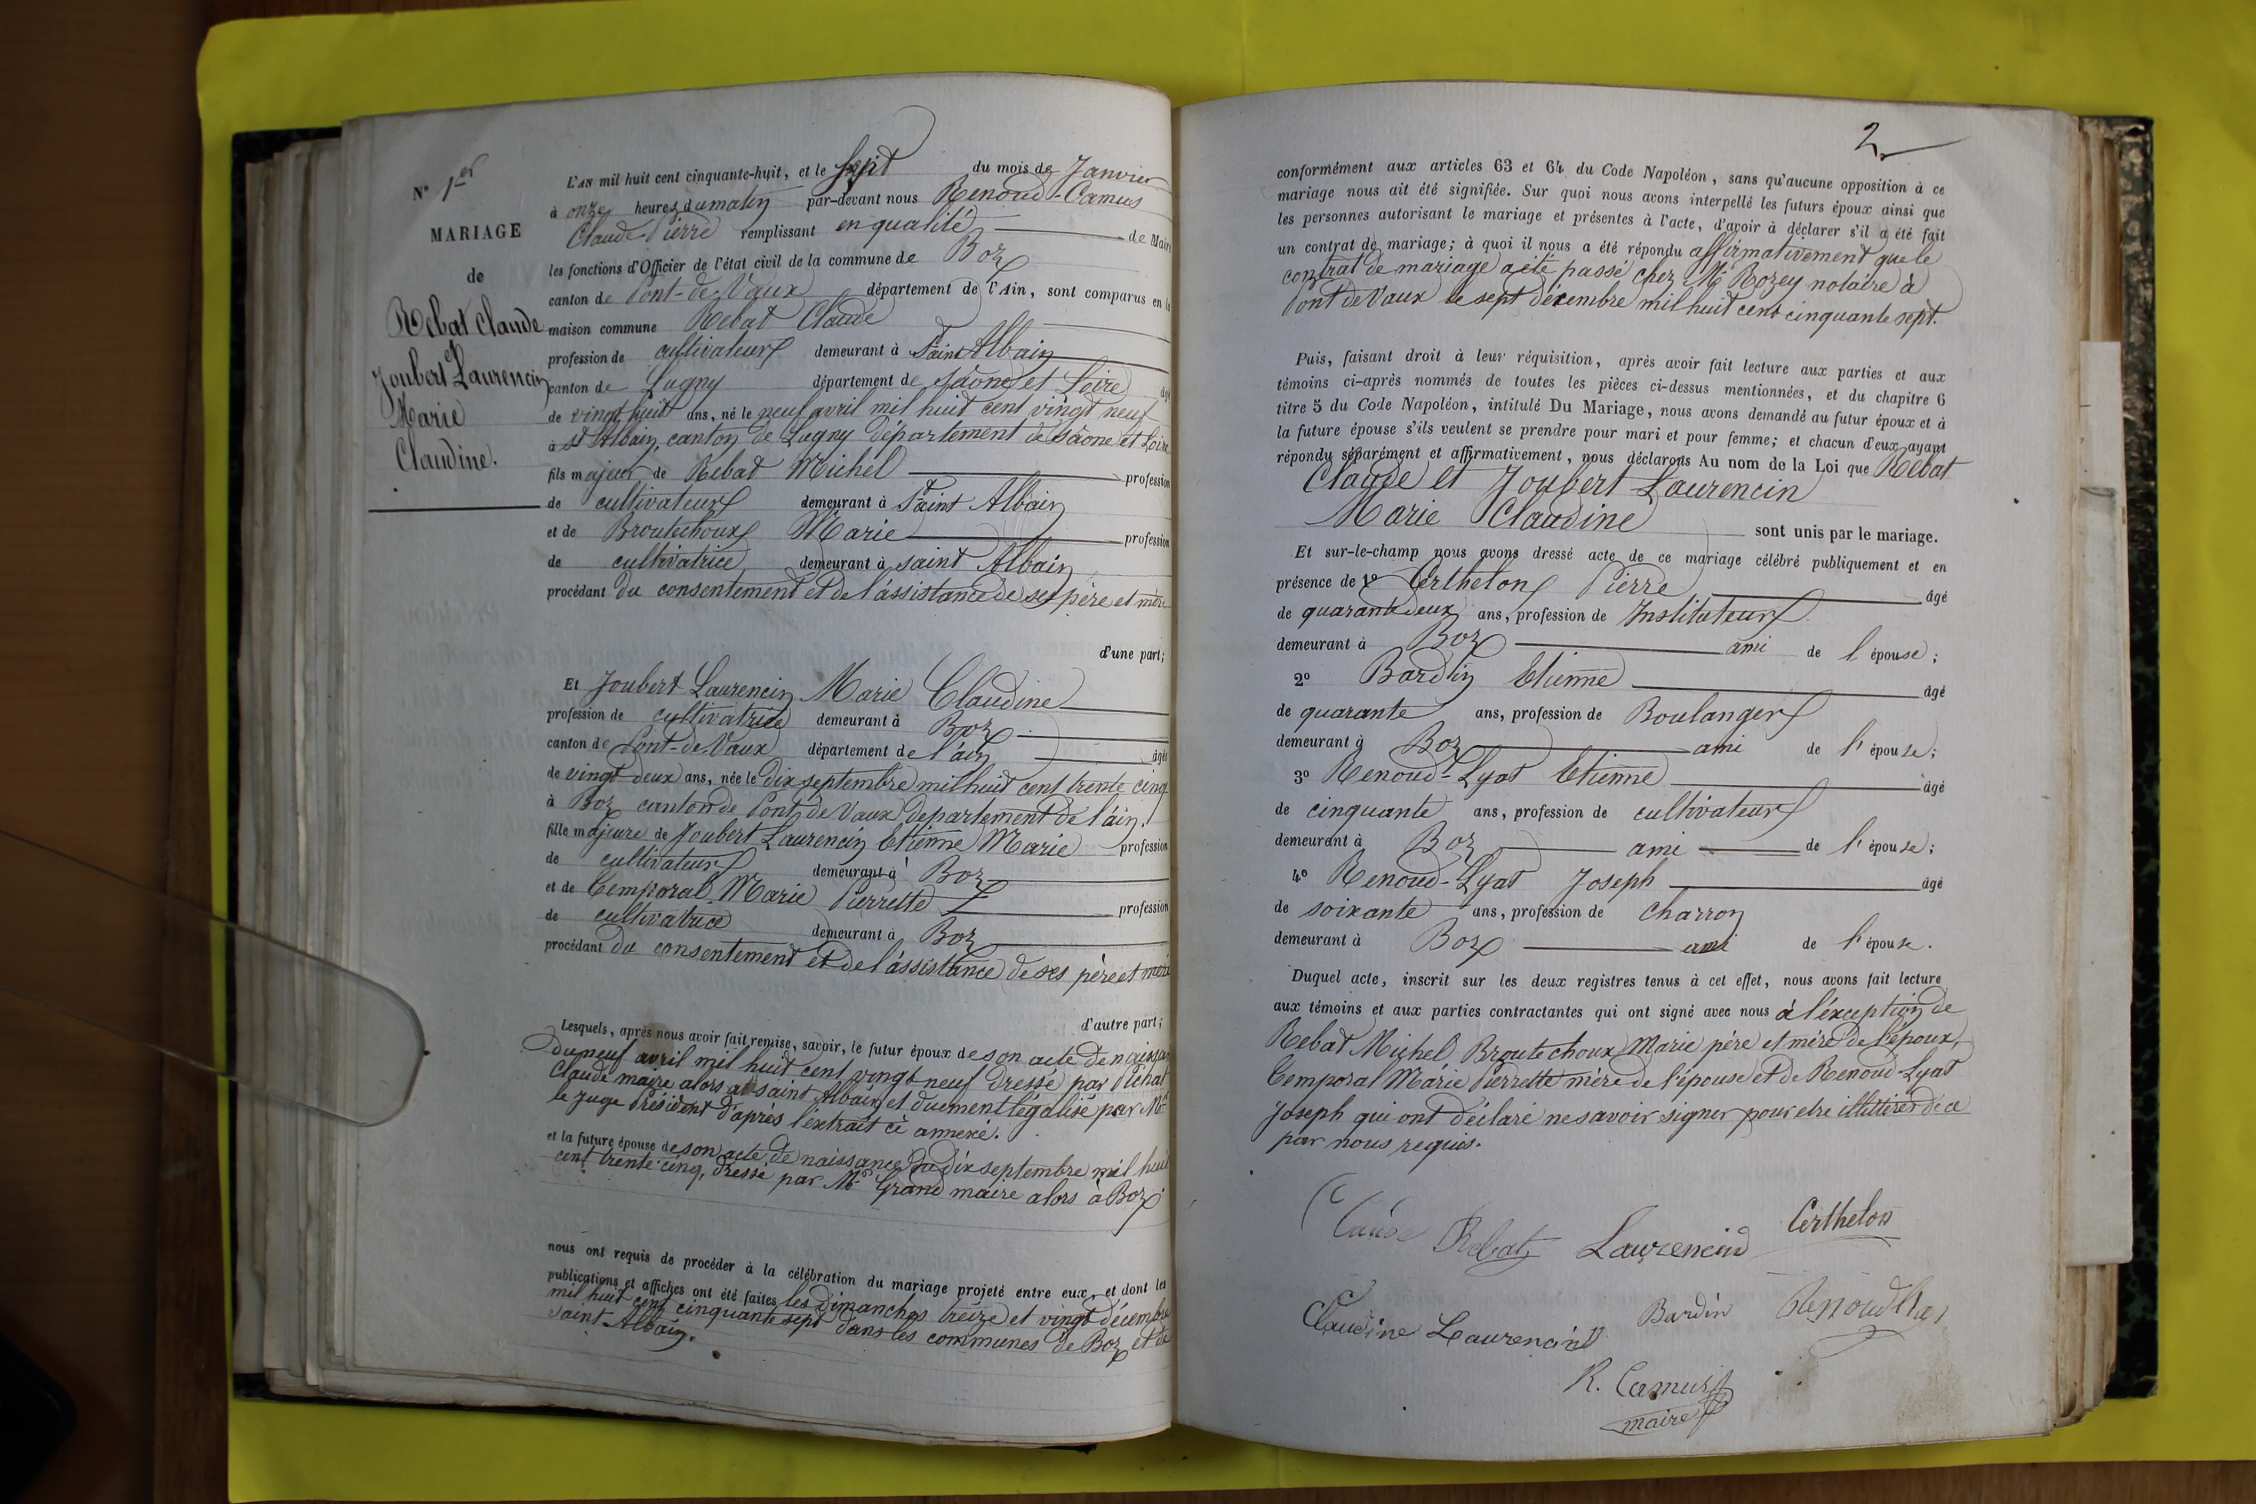 N° 1er
MARIAGE
de
Rebat Claude
et
Joubert Laurencin
Marie
Claudine.
L'AN mil huit cent cinquante-huit, et le sept du mois de Janvier
à onze heures du matin par-devant nous Renoud-Camus
Claude Pierre remplissant en qualité de Maire
les fonctions d'Officier de l'état civil de la commune de Boz
canton de Pont-de-Vaux département de l'Ain, sont comparus en la
maison commune Rebat Claude
profession de cultivateur demeurant à Saint Albain
canton de Lugny département de Saône et Loire âgé
de vingt huit ans, né le neuf avril mil huit cent vingt neuf
à St Albain, canton de Lugny département de Saône et Loire
fils majeur de Rebat Michel profession
de cultivateur demeurant à Saint Albain
et de Broutechoux Marie profession
de cultivatrice demeurant à saint Albain
procédant du consentement et de l'assistance de ses père et mère
d'une part;
Et Joubert Laurencin Marie Claudine
profession de cultivatrice demeurant à Boz
canton de Pont-de-Vaux département de l'ain âgée
de vingt deux ans, née le dix septembre mil huit cent trente cinq
à Boz canton de Pont de Vaux département de l'ain.
fille majeure de Joubert Laurencin Etienne Marie profession
de cultivateur demeurant à Boz
et de Temporal Marie Pierrette profession
de cultivatrice demeurant à Boz
procédant du consentement et de l'assistance de ses père et mère
d'autre part;
Lesquels, après nous avoir fait remise, savoir, le futur époux de son acte de naissan
du neuf avril mil huit cent vingt neuf dressé par Pichat
Claude maire alors à saint Albain et duement légalisé par Mr
le juge Président d'après l'extrait ci annexé.
et la future épouse de son acte de naissance du dix septembre mil huit
cent trente-cinq, dressé par Mr Grand maire alors à Boz.
nous ont requis de procéder à la célébration du mariage projeté entre eux, et dont les
publications et affiches ont été faites les dimanches treize et vingt décembre
mil huit cent cinquante sept dans les communes de Boz et de
Saint Albain.
2
conformément aux articles 63 et 64 du Code Napoléon, sans qu'aucune opposition à ce
mariage nous ait été signifiée. Sur quoi nous avons interpellé les futurs époux ainsi que
les personnes autorisant le mariage et présentes à l'acte, d'avoir à déclarer s'il a été fait
un contrat de mariage; à quoi il nous a été répondu affirmativement que le
contrat de mariage a été passé chez Me Rozey notaire à
Pont de Vaux le sept décembre mil huit cent cinquante sept.
Puis, faisant droit à leur réquisition, après avoir fait lecture aux parties et aux
témoins ci-après nommés de toutes les pièces ci-dessus mentionnées, et du chapitre 6
titre 5 du Code Napoléon, intitulé Du Mariage, nous avons demandé au futur époux et à
la future épouse s'ils veulent se prendre pour mari et pour femme; et chacun d'eux ayant
répondu séparément et affirmativement, nous déclarons Au nom de la Loi que Rebat
Claude et Joubert Laurencin
Marie Claudine sont unis par le mariage.
Et sur-le-champ nous avons dressé acte de ce mariage célébré publiquement et en
présence de 1° Certhelon Pierre âgé
de quarante deux ans, profession de Instituteur
demeurant à Boz ami de l'épouse;
2° Bardin Etienne âgé
de quarante ans, profession de Boulanger
demeurant à Boz ami de l'épouse;
3° Renoud-Lyat Etienne âgé
de cinquante ans, profession de cultivateur
demeurant à Boz ami de l'épouse;
4° Renoud-Lyat Joseph âgé
de soixante ans, profession de charron
demeurant à Boz ami de l'épouse.
Duquel acte, inscrit sur les deux registres tenus à cet effet, nous avons fait lecture
aux témoins et aux parties contractantes qui ont signé avec nous à l'exception de
Rebat Michel Broutechoux Marie père et mère de l'époux,
Temporal Marie Pierrette mère de l'épouse et de Renoud-Lyat
Joseph qui ont déclaré ne savoir signer pour etre illittirés de ce
par nous requis.
Claude Rebat Laurencin Certhelon
Claudine Laurencin Bardin
R. Camus
maire